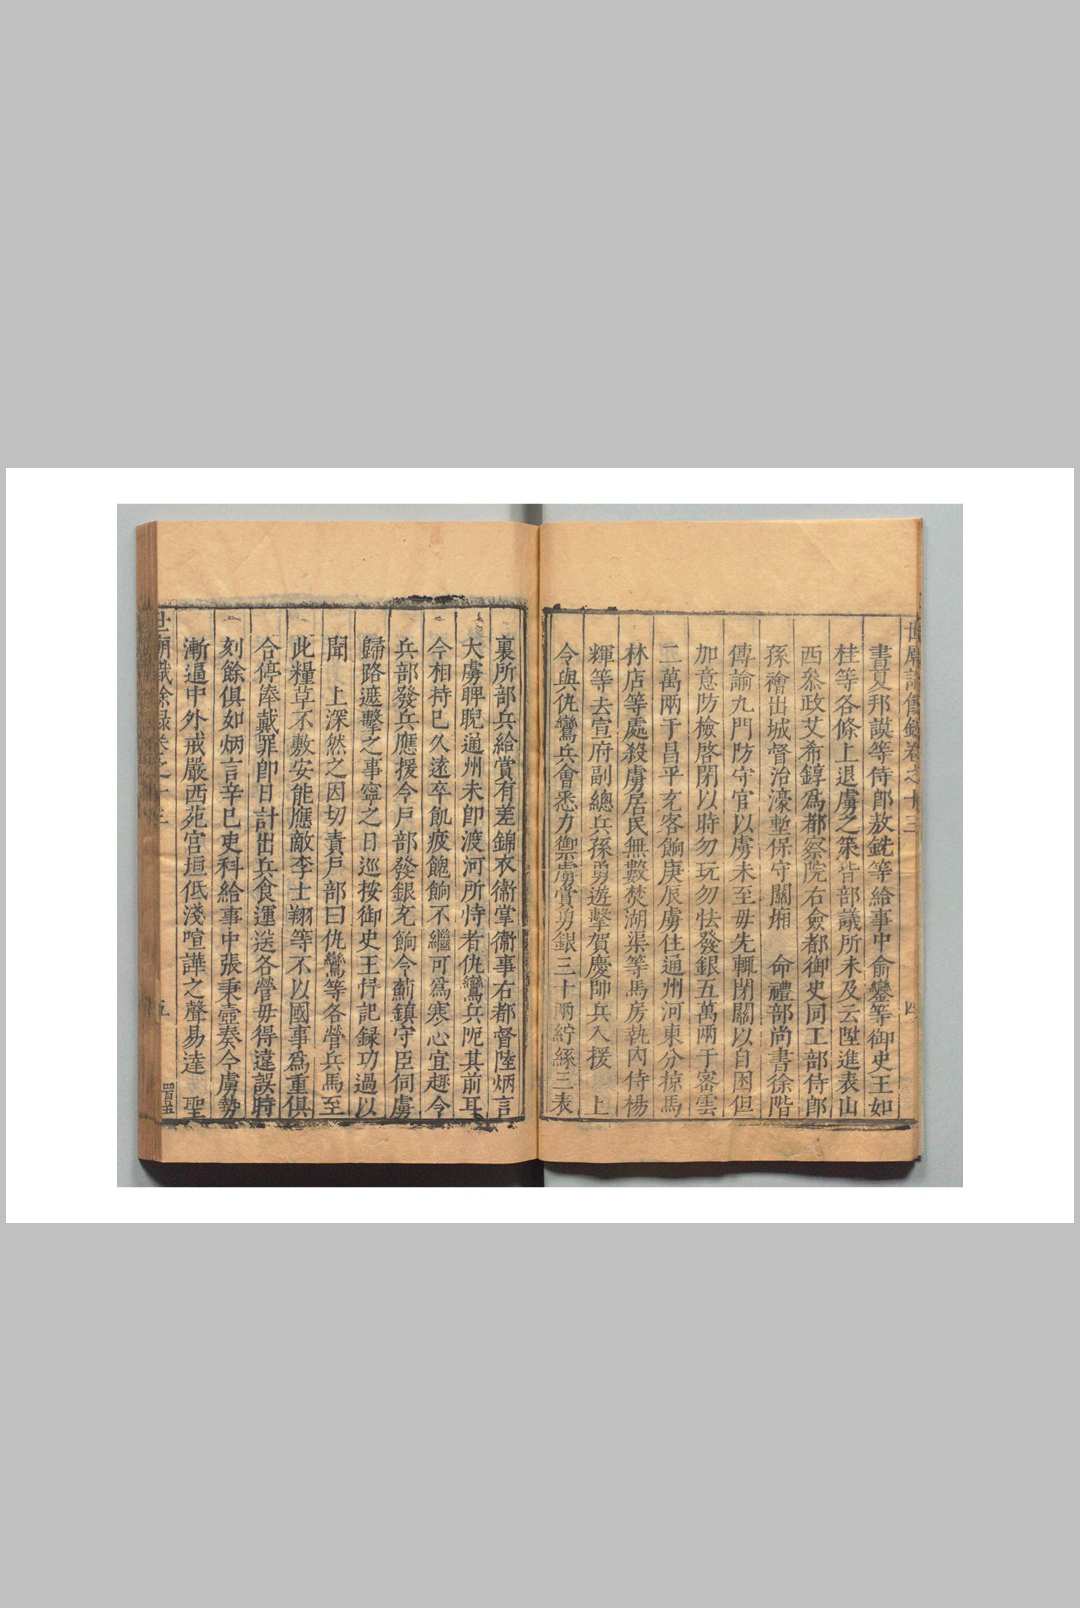 世廟識餘錄卷之十三
四
書夏邦謨等侍郎敖銑等給事中俞鑾等御史王如
桂等各條上退虜之策皆部議所未及云陞進表山
西叅政艾希錞爲都察院右僉都御史同工部侍郎
孫禬出城督治濠塹保守關廂 命禮部尚書徐階
傳諭九門防守官以虜未至毋先輒閉關以自困但
加意防檢啓閉以時勿玩勿怯發銀五萬兩于密雲
二萬兩于昌平充客餉庚辰虜住通州河東分掠馬
林店等處殺虜居民無數焚湖渠等馬房執內侍楊
輝等去宣府副總兵孫勇遊擊賀慶帥兵入援 上
令與仇鸞兵會悉力禦虜賞勇銀三十兩紵絲三表
裏所部兵給賞有差錦衣衞掌衞事右都督陸炳言
大虜睥睨通州未卽渡河所恃者仇鸞兵阨其前耳
今相持已久遠卒飢疲餽餉不繼可爲寒心宜趣令
兵部發兵應援令戶部發銀充餉令薊鎮守臣伺虜
歸路遮擊之事寧之日巡按御史王忬記録功過以
聞 上深然之因切責戶部曰仇鸞等各營兵馬至
此糧草不敷安能應敵李士翺等不以國事爲重俱
合停俸戴罪卽日計出兵食運送各營毋得違誤時
刻餘俱如炳言辛巳吏科給事中張秉壺奏今虜勢
漸逼中外戒嚴西苑宮垣低淺喧譁之聲易達 聖
世廟識餘錄卷之十三
五